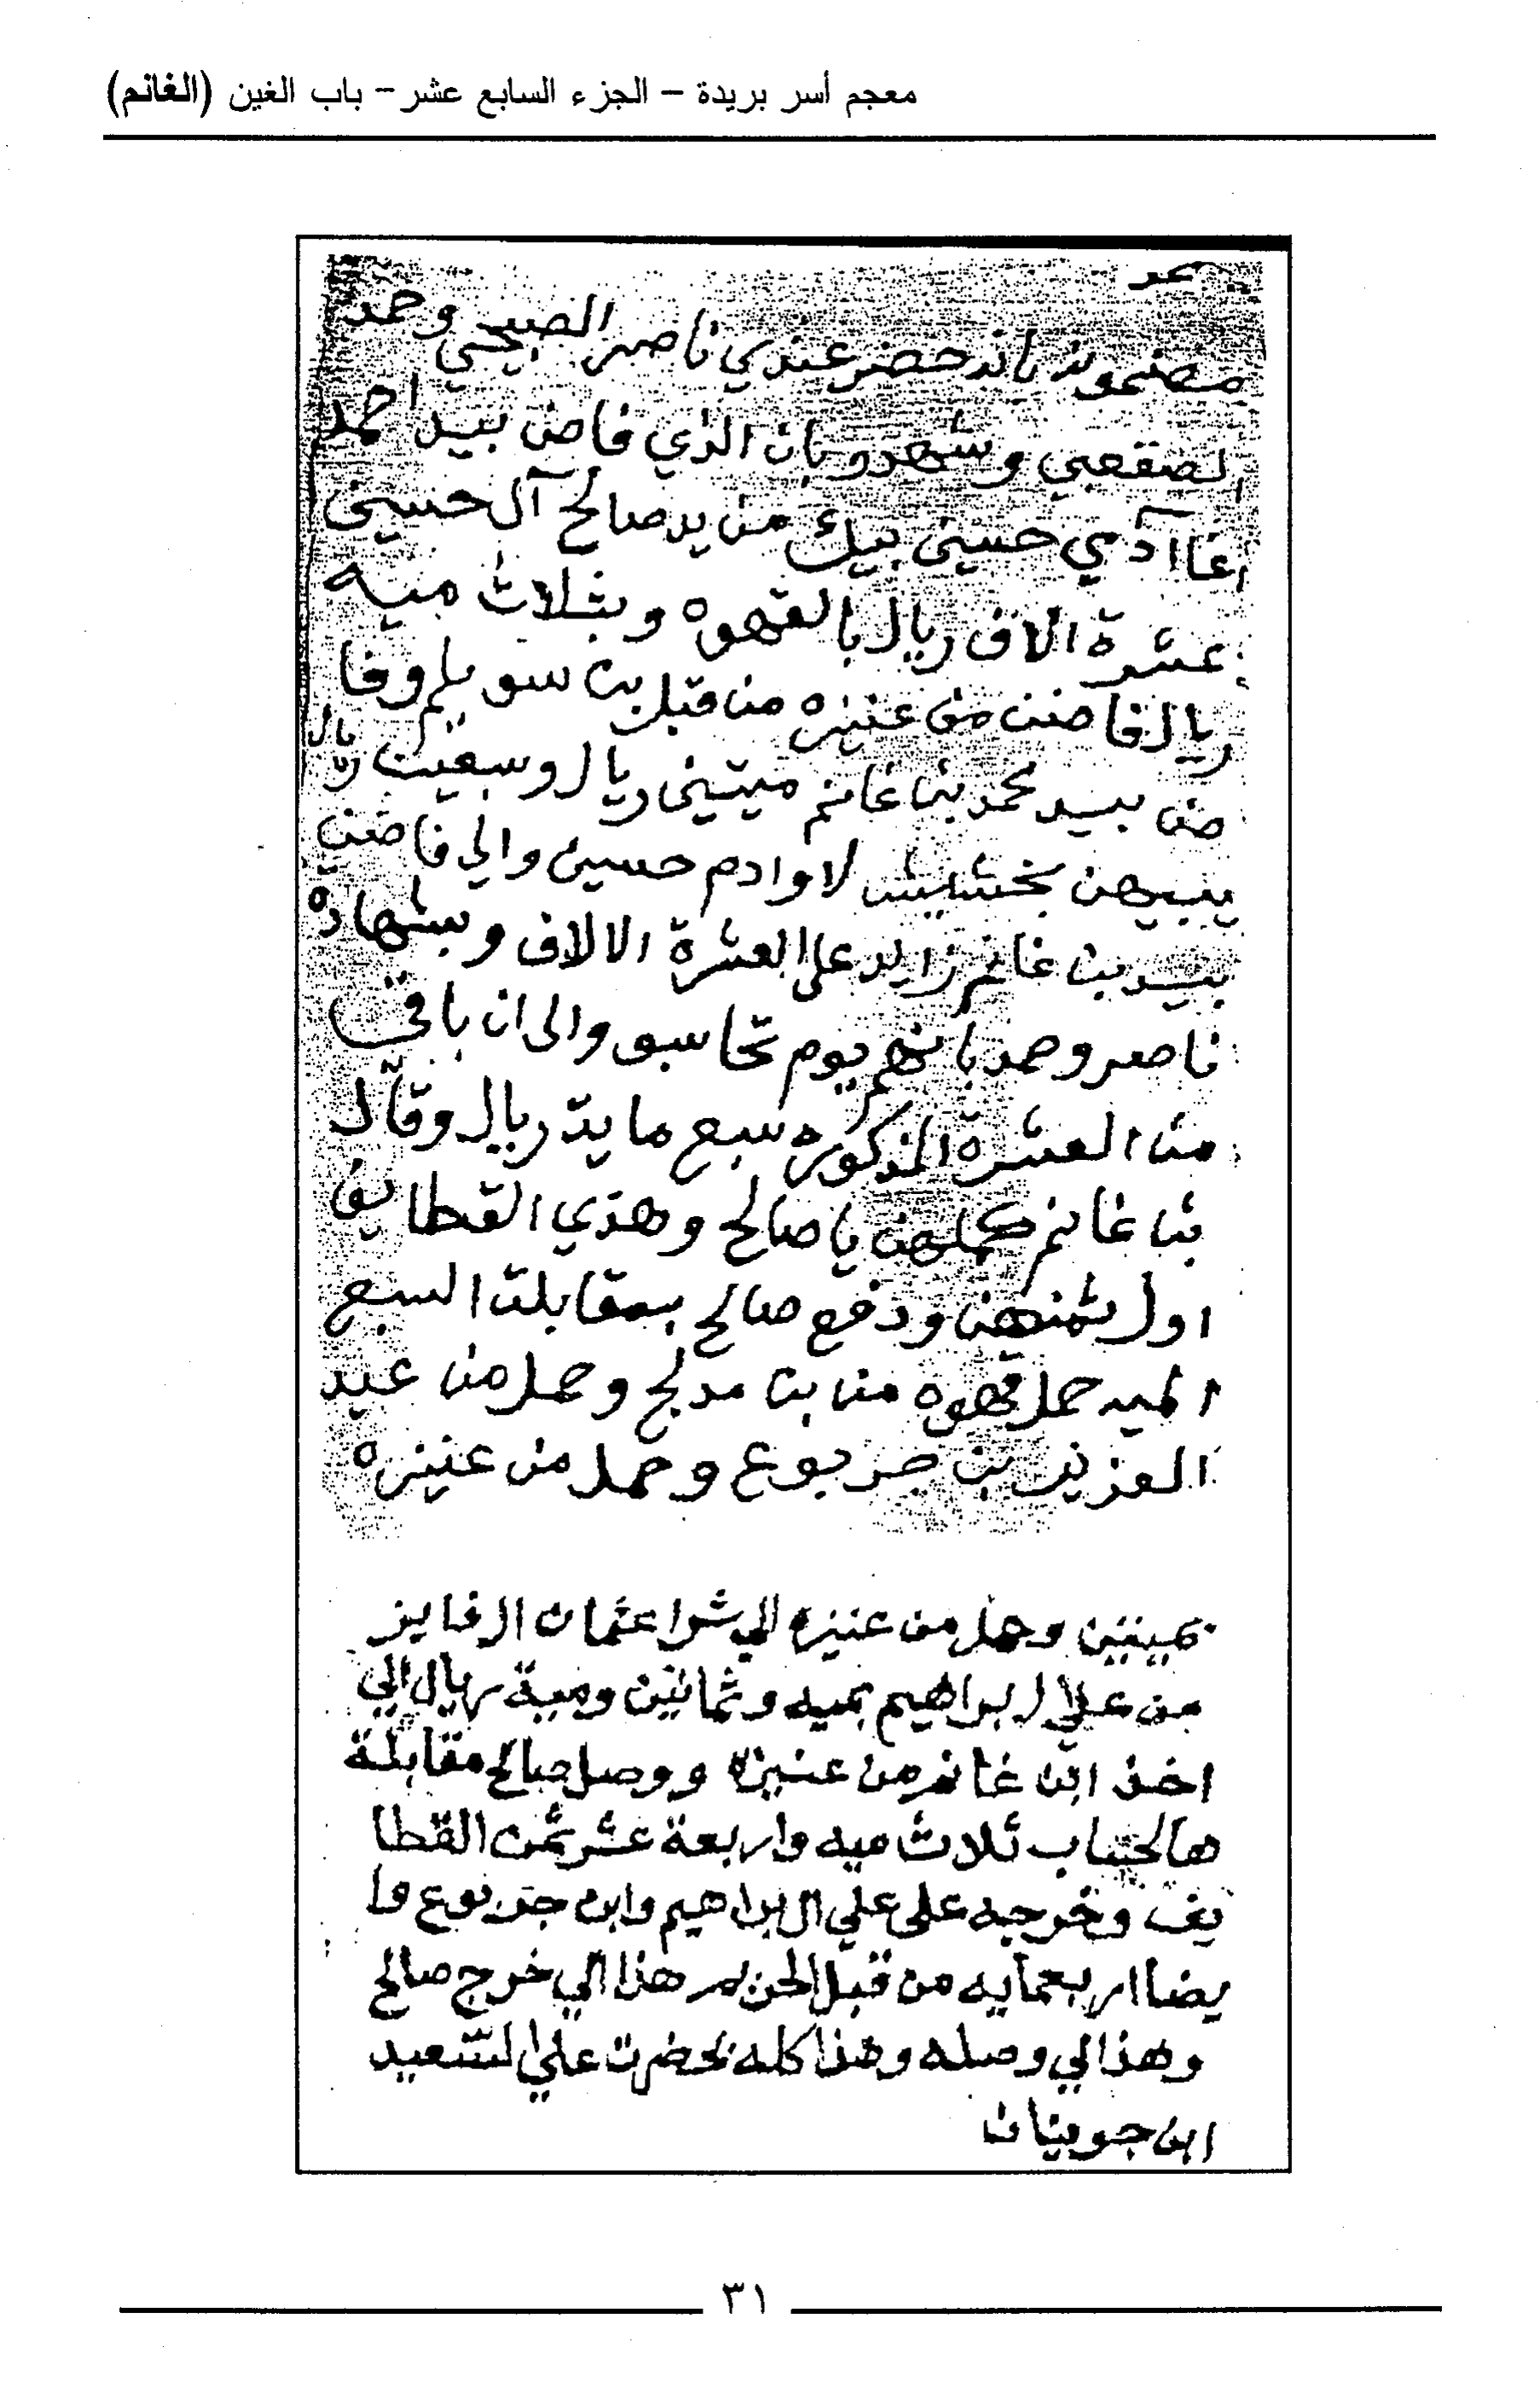 معجم أسر بريدة – الجزء السابع عشر – باب الغين (الغانم)
مضمونه بانه حضر عندي ناصر الصبيحي وحمد
الصقعبي وشهدو بان الذي فاض بيد احمد
اغا ادمي حسين بيك من يد صالح آل حسين
عشرة الاف ريال بالقهوه وبثلاث ميه
ريال فاضن من عنيزه من قبل بن سويلم وفا
ضن بيد محمد بن غانم ميتين ريال وسبعين ريال
يبيهن بخشيش لاوادم حسين والي فاضن
بيد بن غانم زايد على العشرة الالاف وبشهادة
ناصر وحمد بانهم يوم تحاسبو والى ان باقي
من العشرة المذكوره سبع ماية ريال وقال
بن غانم كملهن يا صالح وهذي القطايف
اول ثمنهن ودفع صالح بمقابلة السبع
الميه حمل قهوه من بن مدلج وحمل من عبد
العزيز بن جربوع وحمل من عنيزه
بميتين وحمل من عنيزه الي شرا عثمان الفايز
من علي ال براهيم بميه وثمانين ومية ريال الي
اخذ ابن غانم من عنيزة ووصل صالح مقابلة
هالحساب ثلاث ميه واربعة عشر ثمن القطا
يف وخرجيه على علي ال براهيم وابن جربوع وا
يضا اربعمايه من قبل هذا الي خرج صالح
وهذا الي وصله وهذا كله بحضرت علي السعيد
ابن جوبيان
٣١